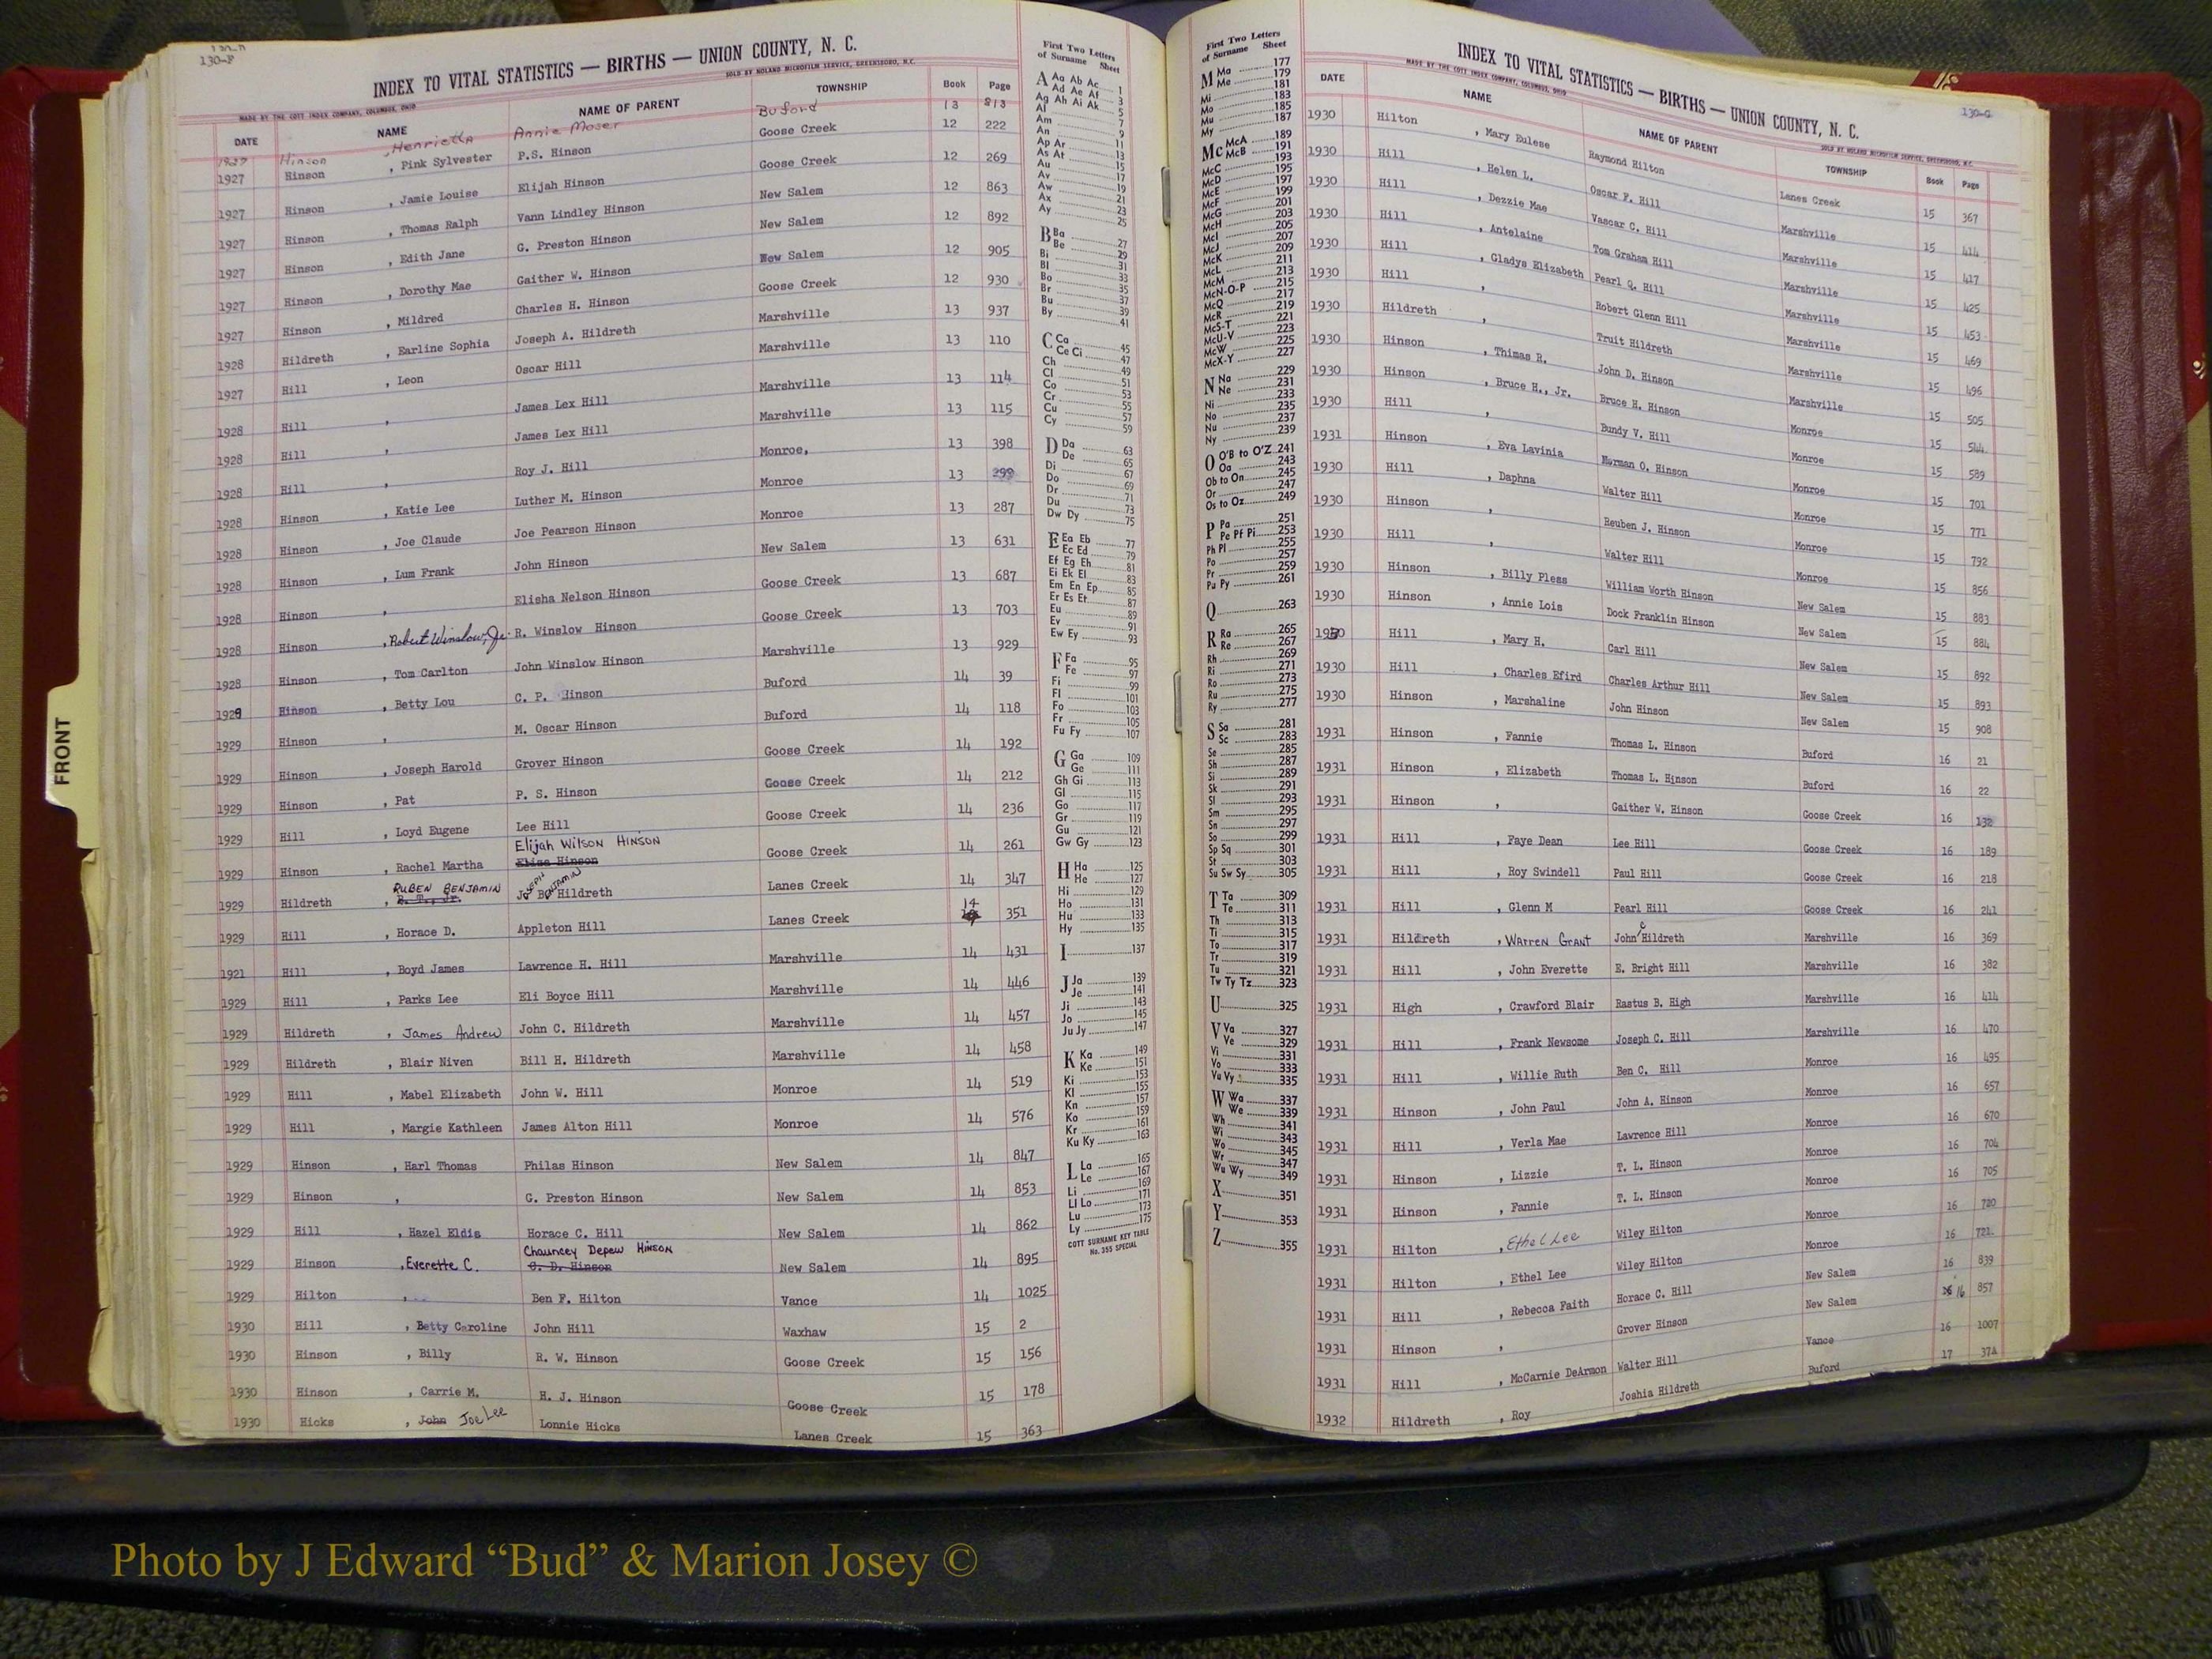 130-F
INDEX TO VITAL STATISTICS — BIRTHS — UNION COUNTY, N. C.
MADE BY THE COTT INDEX COMPANY, COLUMBUS, OHIO SOLD BY NOLAND MICROFILM SERVICE, GREENSBORO, N.C.
DATE NAME NAME OF PARENT TOWNSHIP Book Page
1927 Hinson , Henrietta Annie Moser Buford 13 813
1927 Hinson , Pink Sylvester P.S. Hinson Goose Creek 12 222
1927 Hinson , Jamie Louise Elijah Hinson Goose Creek 12 269
1927 Hinson , Thomas Ralph Vann Lindley Hinson New Salem 12 863
1927 Hinson , Edith Jane G. Preston Hinson New Salem 12 892
1927 Hinson , Dorothy Mae Gaither W. Hinson New Salem 12 905
1927 Hinson , Mildred Charles H. Hinson Goose Creek 12 930
1928 Hildreth , Earline Sophia Joseph A. Hildreth Marshville 13 937
1927 Hill , Leon Oscar Hill Marshville 13 110
1928 Hill , James Lex Hill Marshville 13 114
1928 Hill , James Lex Hill Marshville 13 115
1928 Hill , Roy J. Hill Monroe, 13 398
1928 Hinson , Katie Lee Luther M. Hinson Monroe 13 299
1928 Hinson , Joe Claude Joe Pearson Hinson Monroe 13 287
1928 Hinson , Lum Frank John Hinson New Salem 13 631
1928 Hinson , Elisha Nelson Hinson Goose Creek 13 687
1928 Hinson , Robert Winslow, Jr. R. Winslow Hinson Goose Creek 13 703
1928 Hinson , Tom Carlton John Winslow Hinson Marshville 13 929
1929 Hinson , Betty Lou C. P. Hinson Buford 14 39
1929 Hinson , M. Oscar Hinson Buford 14 118
1929 Hinson , Joseph Harold Grover Hinson Goose Creek 14 192
1929 Hinson , Pat P. S. Hinson Goose Creek 14 212
1929 Hill , Loyd Eugene Lee Hill Goose Creek 14 236
Elijah Wilson Hinson
1929 Hinson , Rachel Martha Elisa Hinson Goose Creek 14 261
RUBEN BENJAMIN JOSEPH BENJAMIN
1929 Hildreth , B. T., Jr. J. B. Hildreth Lanes Creek 14 347
1929 Hill , Horace D. Appleton Hill Lanes Creek 14 351
1921 Hill , Boyd James Lawrence H. Hill Marshville 14 431
1929 Hill , Parks Lee Eli Boyce Hill Marshville 14 446
1929 Hildreth , James Andrew John C. Hildreth Marshville 14 457
1929 Hildreth , Blair Niven Bill H. Hildreth Marshville 14 458
1929 Hill , Mabel Elizabeth John W. Hill Monroe 14 519
1929 Hill , Margie Kathleen James Alton Hill Monroe 14 576
1929 Hinson , Harl Thomas Philas Hinson New Salem 14 847
1929 Hinson , G. Preston Hinson New Salem 14 853
1929 Hill , Hazel Eldis Horace C. Hill New Salem 14 862
Chauncey Depew Hinson
1929 Hinson , Everette C. C. D. Hinson New Salem 14 895
1929 Hilton , Ben F. Hilton Vance 14 1025
1930 Hill , Betty Caroline John Hill Waxhaw 15 2
1930 Hinson , Billy R. W. Hinson Goose Creek 15 156
1930 Hinson , Carrie M. H. J. Hinson Goose Creek 15 178
1930 Hicks , John Joe Lee Lonnie Hicks Lanes Creek 15 363
First Two Letters of Surname Sheet
A Aa Ab Ac 1
Ad Ae Af 3
Ag Ah Ai Ak 5
Al 7
Am 9
An 11
Ap Ar 13
As At 15
Au 17
Av 19
Aw 21
Ax 23
Ay 25
B Ba 27
Be 29
Bi 31
Bl 33
Bo 35
Br 37
Bu 39
By 41
C Ca 45
Ce Ci 47
Ch 49
Cl 51
Co 53
Cr 55
Cu 57
Cy 59
D Da 63
De 65
Di 67
Do 69
Dr 71
Du 73
Dw Dy 75
E Ea Eb 77
Ec Ed 79
Ef Eg Eh 81
Ei Ek El 83
Em En Ep 85
Er Es Et 87
Eu 89
Ev 91
Ew Ey 93
F Fa 95
Fe 97
Fi 99
Fl 101
Fo 103
Fr 105
Fu Fy 107
G Ga 109
Ge 111
Gh Gi 113
Gl 115
Go 117
Gr 119
Gu 121
Gw Gy 123
H Ha 125
He 127
Hi 129
Ho 131
Hu 133
Hy 135
I 137
J Ja 139
Je 141
Ji 143
Jo 145
Ju Jy 147
K Ka 149
Ke 151
Ki 153
Kl 155
Kn 157
Ko 159
Kr 161
Ku Ky 163
L La 165
Le 167
Li 169
Ll Lo 171
Lu 173
Ly 175
COTT SURNAME KEY TABLE
No. 355 SPECIAL
First Two Letters of Surname Sheet
M Ma 177
Me 179
Mi 181
Mo 183
Mu 185
My 187
Mc McA 189
McB 191
McC 193
McD 195
McE 197
McF 199
McG 201
McH 203
McI 205
McJ 207
McK 209
McL 211
McM 213
McN-O-P 215
McQ 217
McR 219
McS-T 221
McU-V 223
McW 225
McX-Y 227
N Na 229
Ne 231
Ni 233
No 235
Nu 237
Ny 239
O O'B to O'Z 241
Oa 243
Ob to On 245
Or 247
Os to Oz 249
P Pa 251
Pe Pf Pi 253
Ph Pl 255
Po 257
Pr 259
Pu Py 261
Q 263
R Ra 265
Re 267
Rh 269
Ri 271
Ro 273
Ru 275
Ry 277
S Sa 281
Sc 283
Se 285
Sh 287
Si 289
Sk 291
Sl 293
Sm 295
Sn 297
So 299
Sp Sq 301
St 303
Su Sw Sy 305
T Ta 309
Te 311
Th 313
Ti 315
To 317
Tr 319
Tu 321
Tw Ty Tz 323
U 325
V Va 327
Ve 329
Vi 331
Vo 333
Vu Vy 335
W Wa 337
We 339
Wh 341
Wi 343
Wo 345
Wr 347
Wu Wy 349
X 351
Y 353
Z 355
130-G
INDEX TO VITAL STATISTICS — BIRTHS — UNION COUNTY, N. C.
MADE BY THE COTT INDEX COMPANY, COLUMBUS, OHIO SOLD BY NOLAND MICROFILM SERVICE, GREENSBORO, N.C.
DATE NAME NAME OF PARENT TOWNSHIP Book Page
1930 Hilton , Mary Eulese Raymond Hilton Lanes Creek 15 367
1930 Hill , Helen L. Oscar F. Hill Marshville 15 414
1930 Hill , Dezzie Mae Vascar C. Hill Marshville 15 417
1930 Hill , Antelaine Tom Graham Hill Marshville 15 425
1930 Hill , Gladys Elizabeth Pearl Q. Hill Marshville 15 453
1930 Hill , Robert Glenn Hill Marshville 15 469
1930 Hildreth , Truit Hildreth Marshville 15 496
1930 Hinson , Thimas R. John D. Hinson Marshville 15 505
1930 Hinson , Bruce H., Jr. Bruce H. Hinson Monroe 15 544
1930 Hill , Bundy V. Hill Monroe 15 589
1931 Hinson , Eva Lavinia Norman O. Hinson Monroe 15 701
1930 Hill , Daphna Walter Hill Monroe 15 771
1930 Hinson , Reuben J. Hinson Monroe 15 792
1930 Hill , Walter Hill Monroe 15 856
1930 Hinson , Billy Pless William Worth Hinson New Salem 15 883
1930 Hinson , Annie Lois Dock Franklin Hinson New Salem 15 884
1930 Hill , Mary H. Carl Hill New Salem 15 892
1930 Hill , Charles Efird Charles Arthur Hill New Salem 15 893
1930 Hinson , Marshaline John Hinson New Salem 15 908
1931 Hinson , Fannie Thomas L. Hinson Buford 16 21
1931 Hinson , Elizabeth Thomas L. Hinson Buford 16 22
1931 Hinson , Gaither W. Hinson Goose Creek 16 132
1931 Hill , Faye Dean Lee Hill Goose Creek 16 189
1931 Hill , Roy Swindell Paul Hill Goose Creek 16 218
1931 Hill , Glenn M Pearl Hill Goose Creek 16 241
1931 Hildreth , Warren Grant John C Hildreth Marshville 16 369
1931 Hill , John Everette E. Bright Hill Marshville 16 382
1931 High , Crawford Blair Rastus B. High Marshville 16 414
1931 Hill , Frank Newsome Joseph C. Hill Marshville 16 470
1931 Hill , Willie Ruth Ben C. Hill Monroe 16 495
1931 Hinson , John Paul John A. Hinson Monroe 16 657
1931 Hill , Verla Mae Lawrence Hill Monroe 16 670
1931 Hinson , Lizzie T. L. Hinson Monroe 16 704
1931 Hinson , Fannie T. L. Hinson Monroe 16 705
1931 Hilton , Ethel Lee Wiley Hilton Monroe 16 720
1931 Hilton , Ethel Lee Wiley Hilton Monroe 16 721
1931 Hill , Rebecca Faith Horace C. Hill New Salem 16 839
1931 Hinson , Grover Hinson New Salem 16 857
1931 Hill , McCarnie DeArmon Walter Hill Vance 16 1007
1932 Hildreth , Roy Joshia Hildreth Buford 17 374
FRONT
Photo by J Edward “Bud” & Marion Josey ©